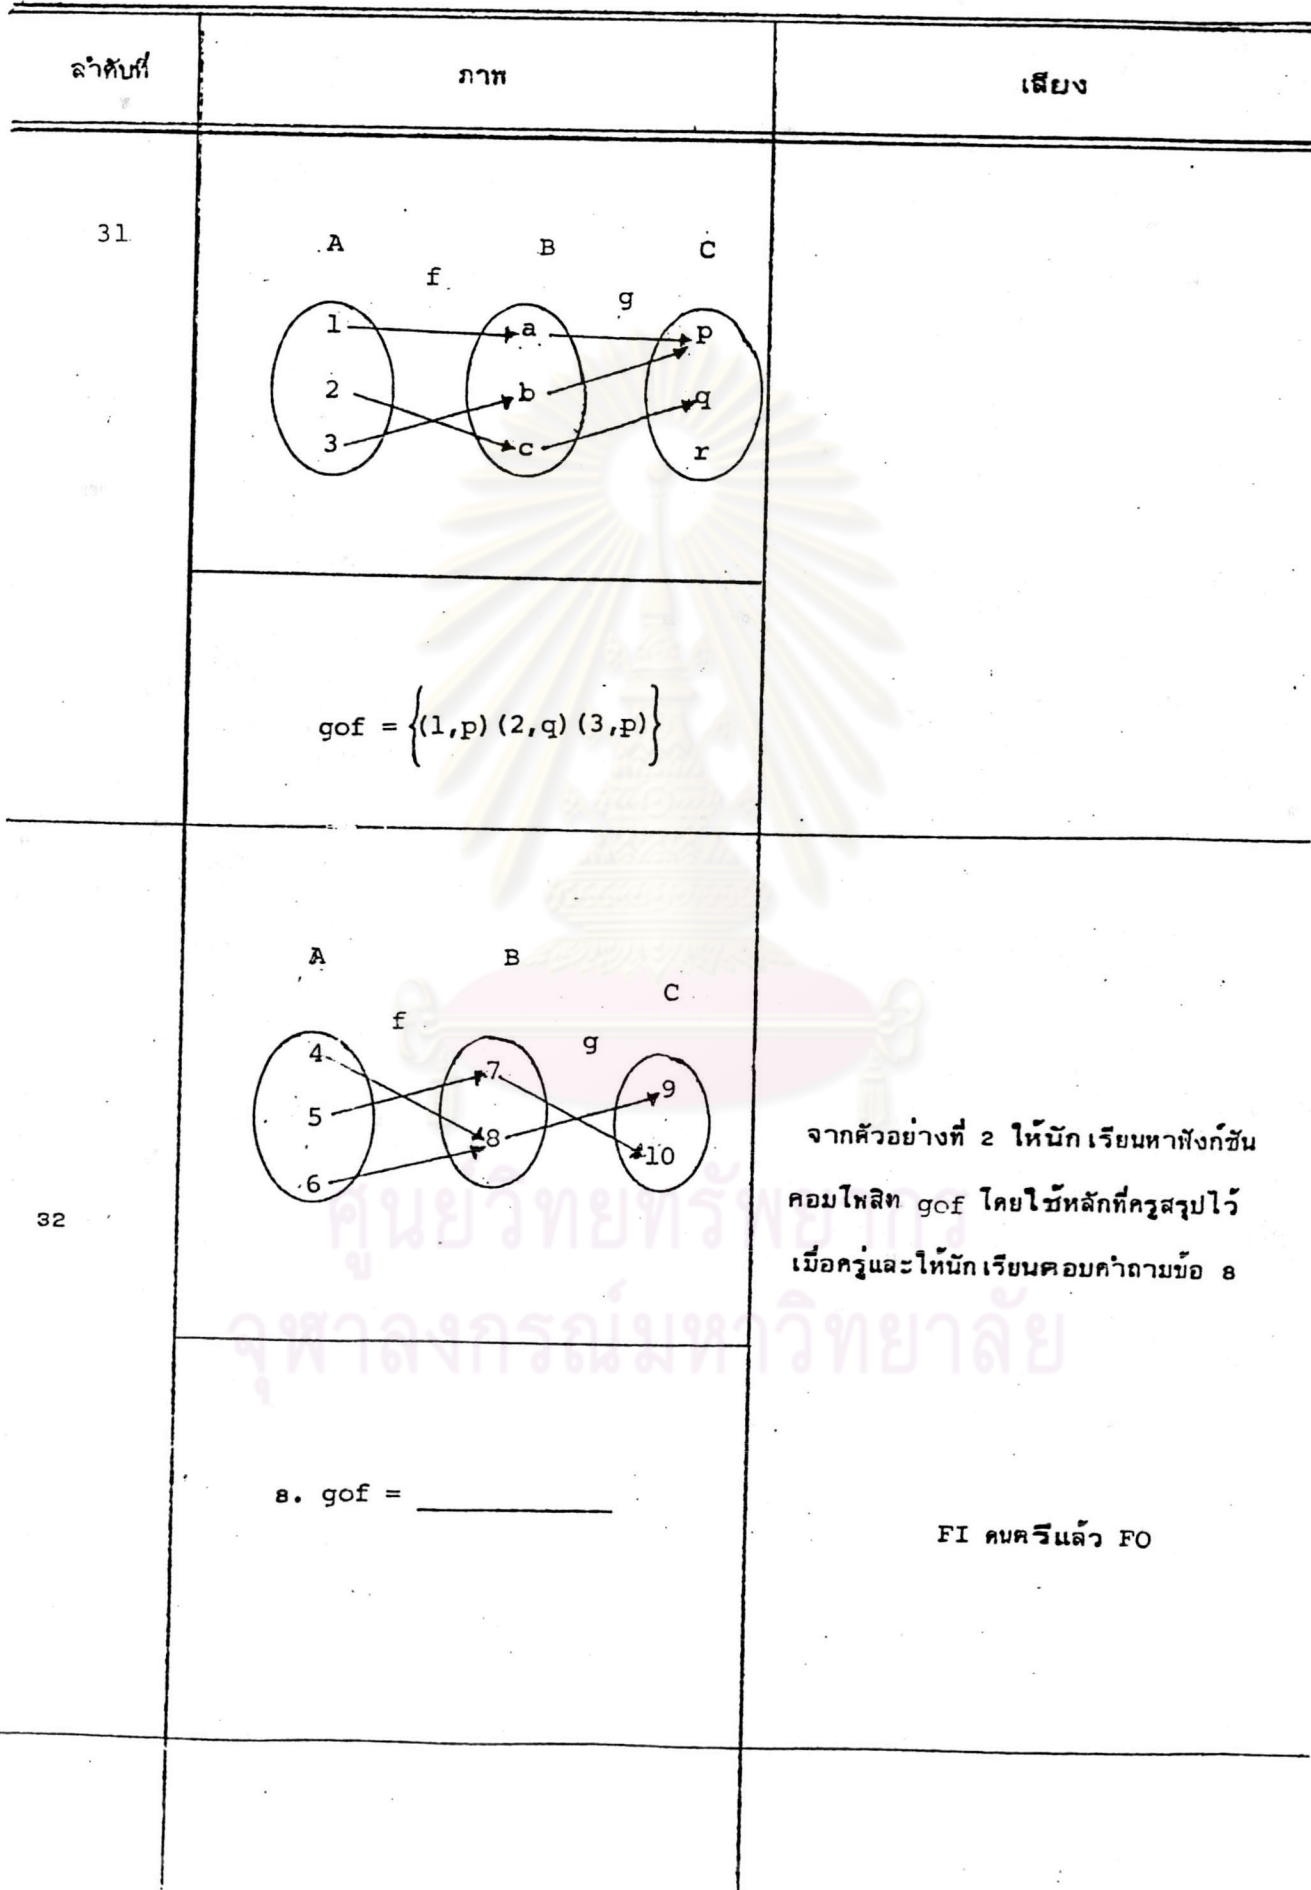 ลำดับที่ ภาพ เสียง
31
A B C
f g
1 a p
2 b q
3 c r
gof = {(1,p) (2,q) (3,p)}
A B C
f g
4 7 9
5 8 10
6
32
จากตัวอย่างที่ 2 ให้นักเรียนหาฟังก์ชัน
คอมโพสิท gof โดยใช้หลักที่ครูสรุปไว้
เมื่อครู่และให้นักเรียนตอบคำถามข้อ 8
8. gof =
FI ดนตรีแล้ว FO
ศูนย์วิทยทรัพยากร
จุฬาลงกรณ์มหาวิทยาลัย